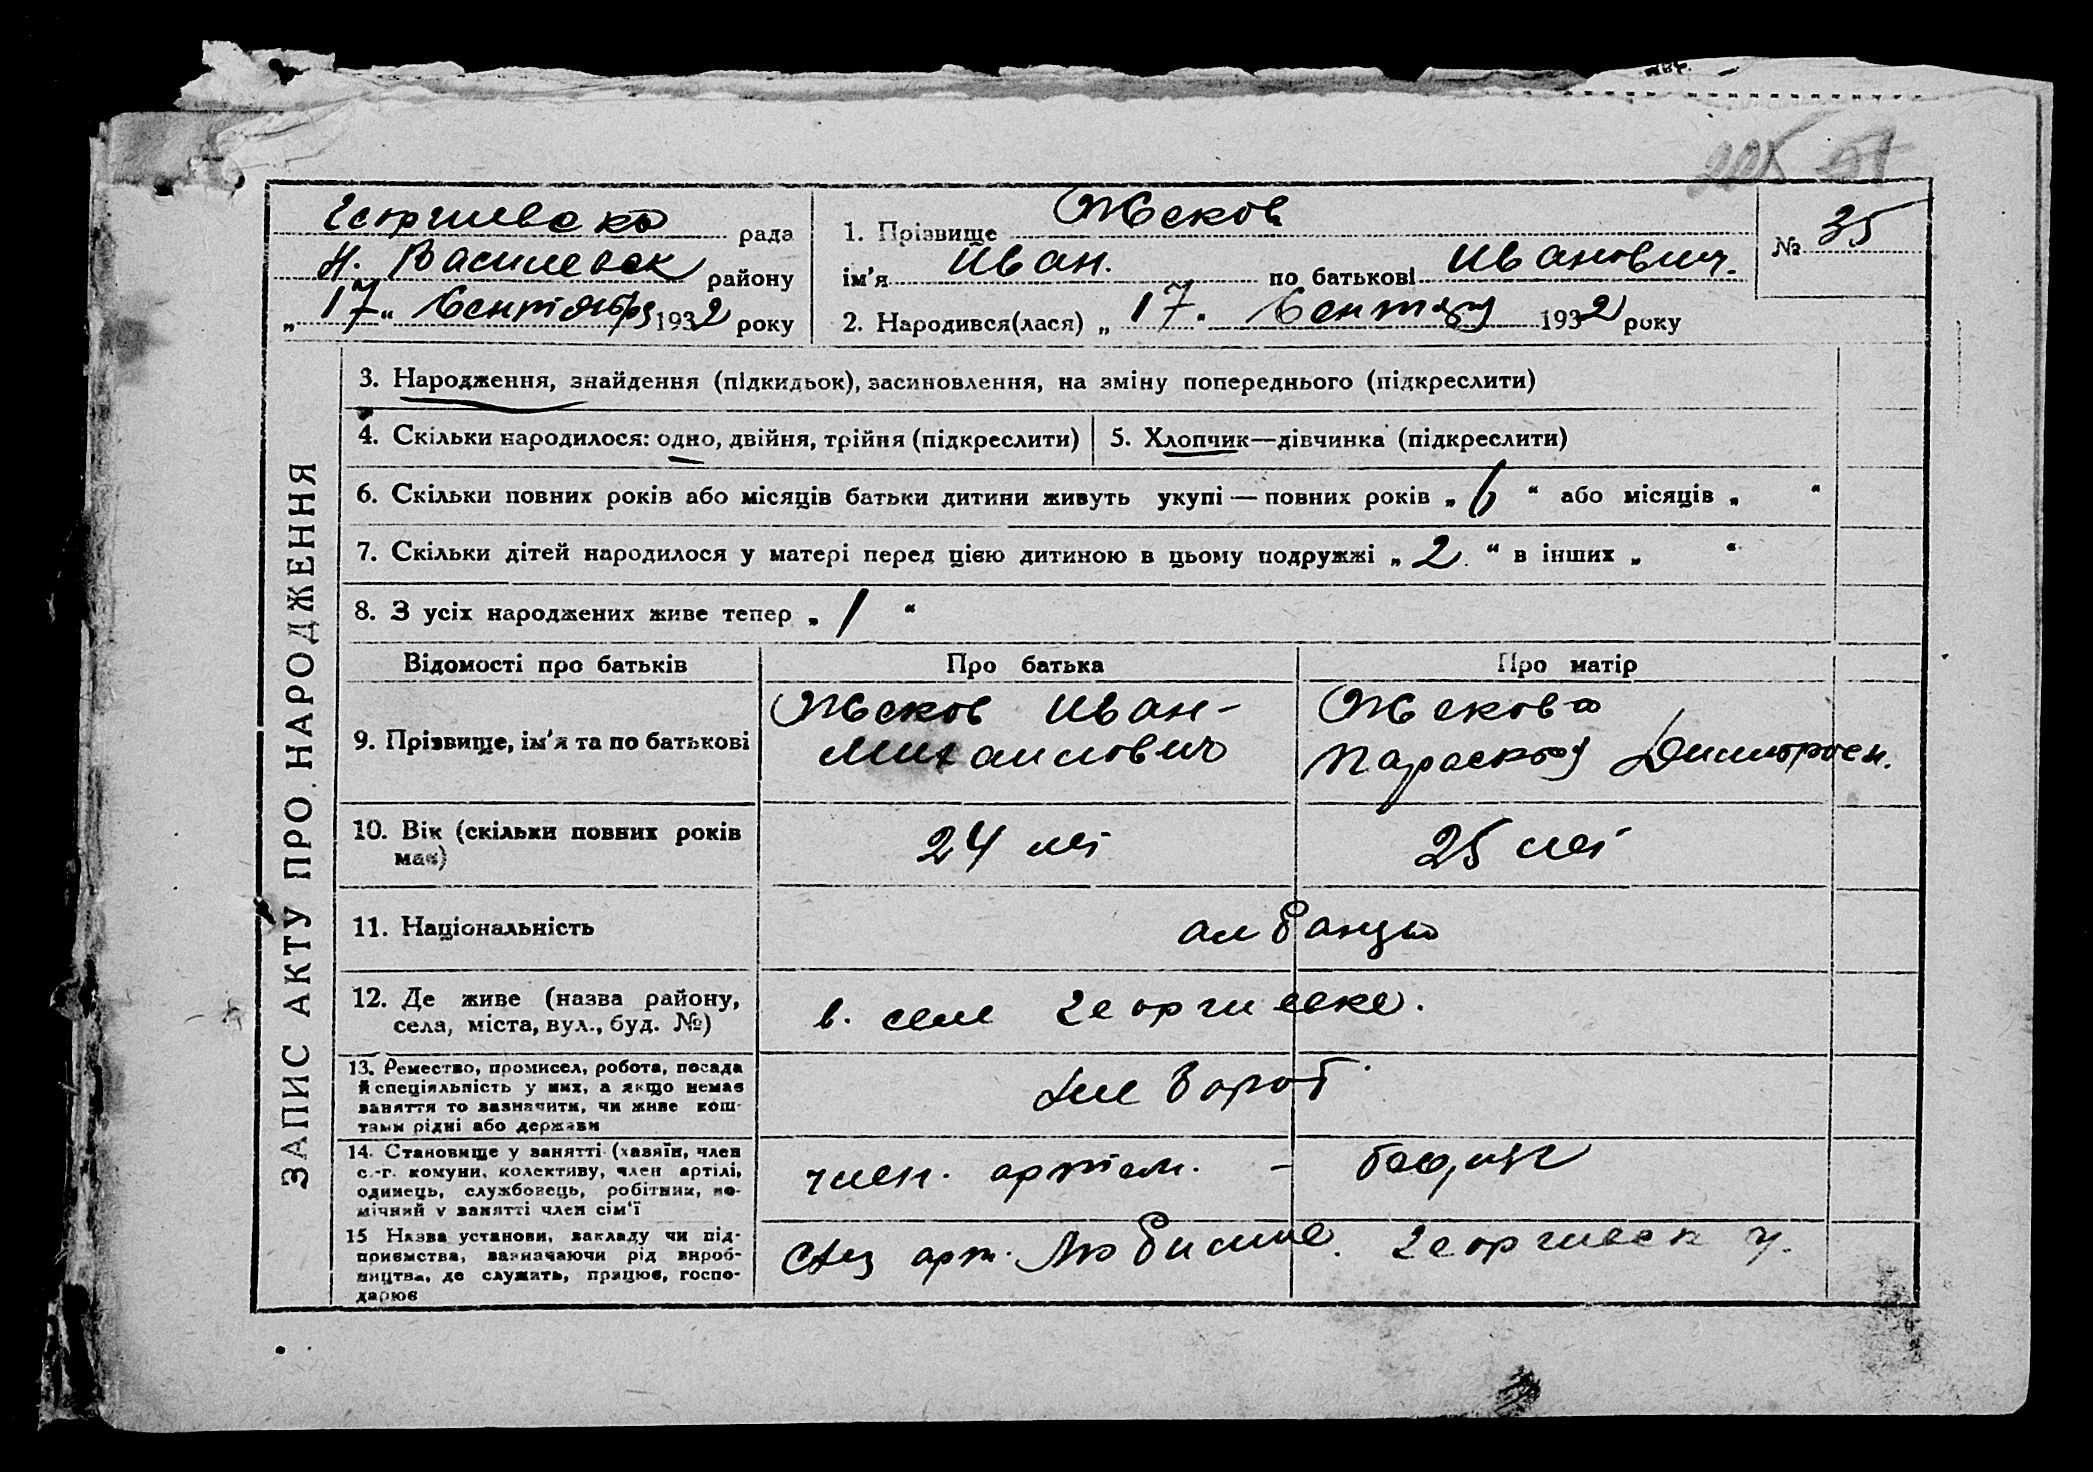 Георгиевска рада
Н. Василевск району
„17“ Сентября 1932 року
1. Прізвище Жеков
ім'я Иван. по батькові Иванович.
2. Народився(лася) „17“ Сентяб 1932 року
№ 35
ЗАПИС АКТУ ПРО НАРОДЖЕННЯ
3. Народження, знайдення (підкидьок), засиновлення, на зміну попереднього (підкреслити)
4. Скільки народилося: одно, двійня, трійня (підкреслити)
5. Хлопчик—дівчинка (підкреслити)
6. Скільки повних років або місяців батьки дитини живуть укупі — повних років „6“ або місяців „ “
7. Скільки дітей народилося у матері перед цією дитиною в цьому подружжі „2.“ в інших „ “
8. З усіх народжених живе тепер „1“
Відомості про батьків
Про батька
Про матір
9. Прізвище, ім'я та по батькові
Жеков Иван-
Михаилович
Жекова
Парасков Димитров.
10. Вік (скільки повних років
має)
24 лет
25 лет
11. Національність
албанцы
12. Де живе (назва району,
села, міста, вул., буд. №)
в. селе Георгиевке.
13. Ремество, промисел, робота, посада
й спеціяльність у них, а якщо немає
заняття то зазначити, чи живе кош-
тами рідні або держави
хлебороб
14. Становище у занятті (хазяїн, член
с.-г. комуни, колективу, член артілі,
одинець, службовець, робітник, по-
мічний у занятті член сім'ї
член. артел. -
15 Назва установи, закладу чи під-
приємства, зазначаючи рід вироб-
ництва, де служать, працює, госпо-
дарює
арт. Георгиевск